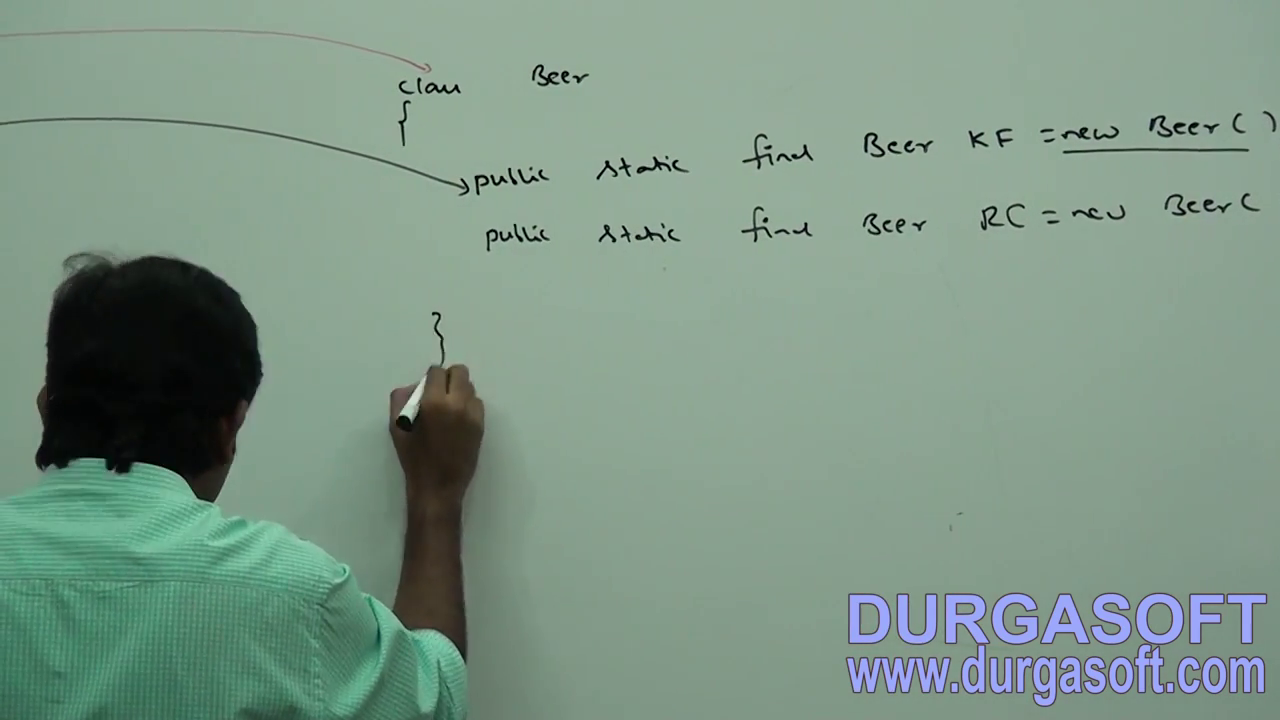 class Beer
{
public static final Beer KF = new Beer( )
public static final Beer RC = new Beer(
}
DURGASOFT
www.durgasoft.com